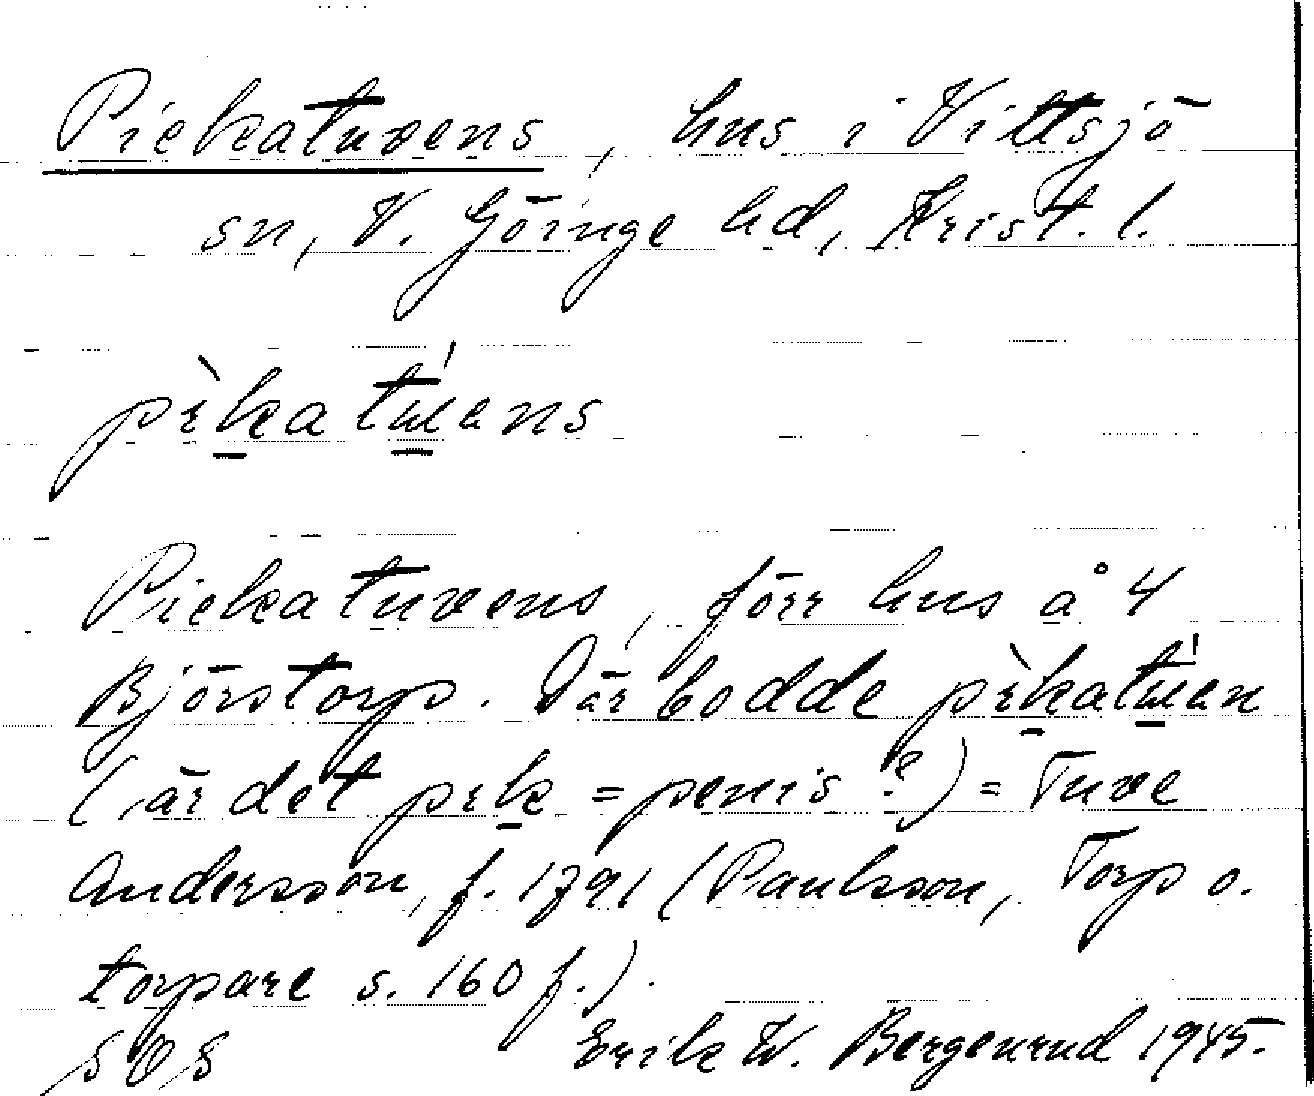 Pickatuvens, hus i Vittsjö
sn, V. Göinge hd, Krist. l.
pìkatúens
Pickatuvens, förr hus å 4
Björstorp. Där bodde pìkatúen
(är det pik = penis?) = Tuve
Andersson, f. 1791 (Paulsson, Torp o.
torpare s. 160 f.).
SOS Erik W. Bergenrud 1945.